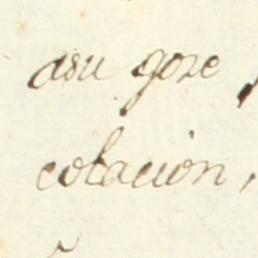 asu goze
colacion,